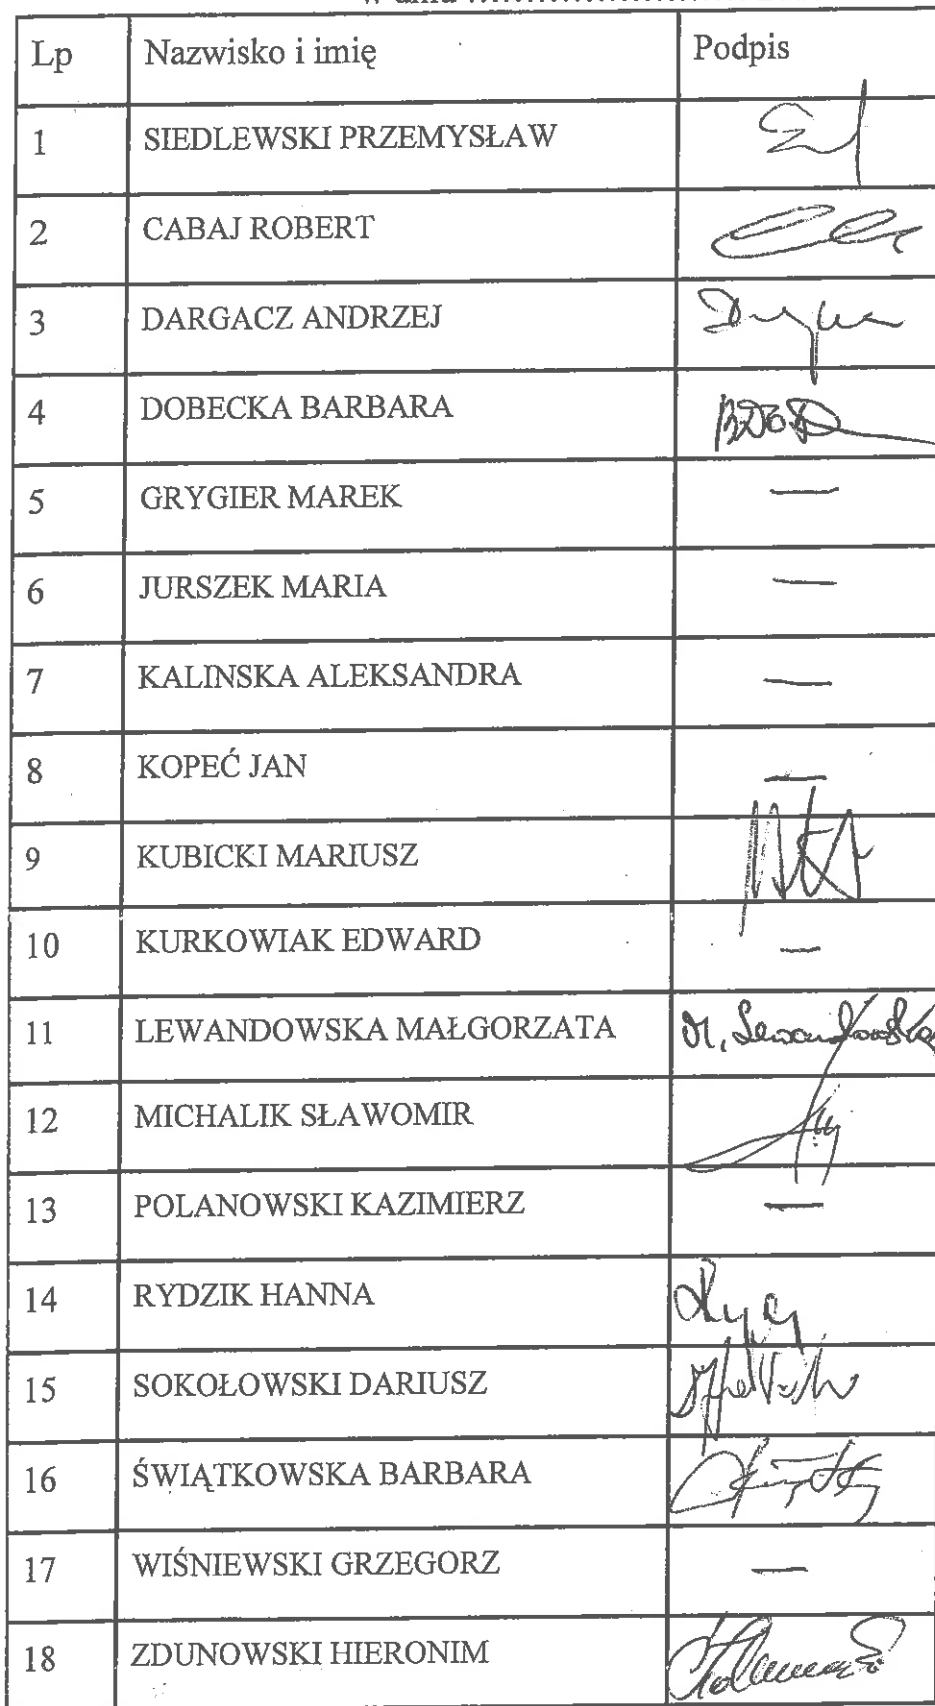 w dniu
Lp Nazwisko i imię Podpis
1 SIEDLEWSKI PRZEMYSŁAW
2 CABAJ ROBERT
3 DARGACZ ANDRZEJ
4 DOBECKA BARBARA
5 GRYGIER MAREK —
6 JURSZEK MARIA —
7 KALINSKA ALEKSANDRA —
8 KOPEĆ JAN —
9 KUBICKI MARIUSZ
10 KURKOWIAK EDWARD —
11 LEWANDOWSKA MAŁGORZATA M. Lewandowska
12 MICHALIK SŁAWOMIR
13 POLANOWSKI KAZIMIERZ —
14 RYDZIK HANNA
15 SOKOŁOWSKI DARIUSZ
16 ŚWIĄTKOWSKA BARBARA
17 WIŚNIEWSKI GRZEGORZ —
18 ZDUNOWSKI HIERONIM